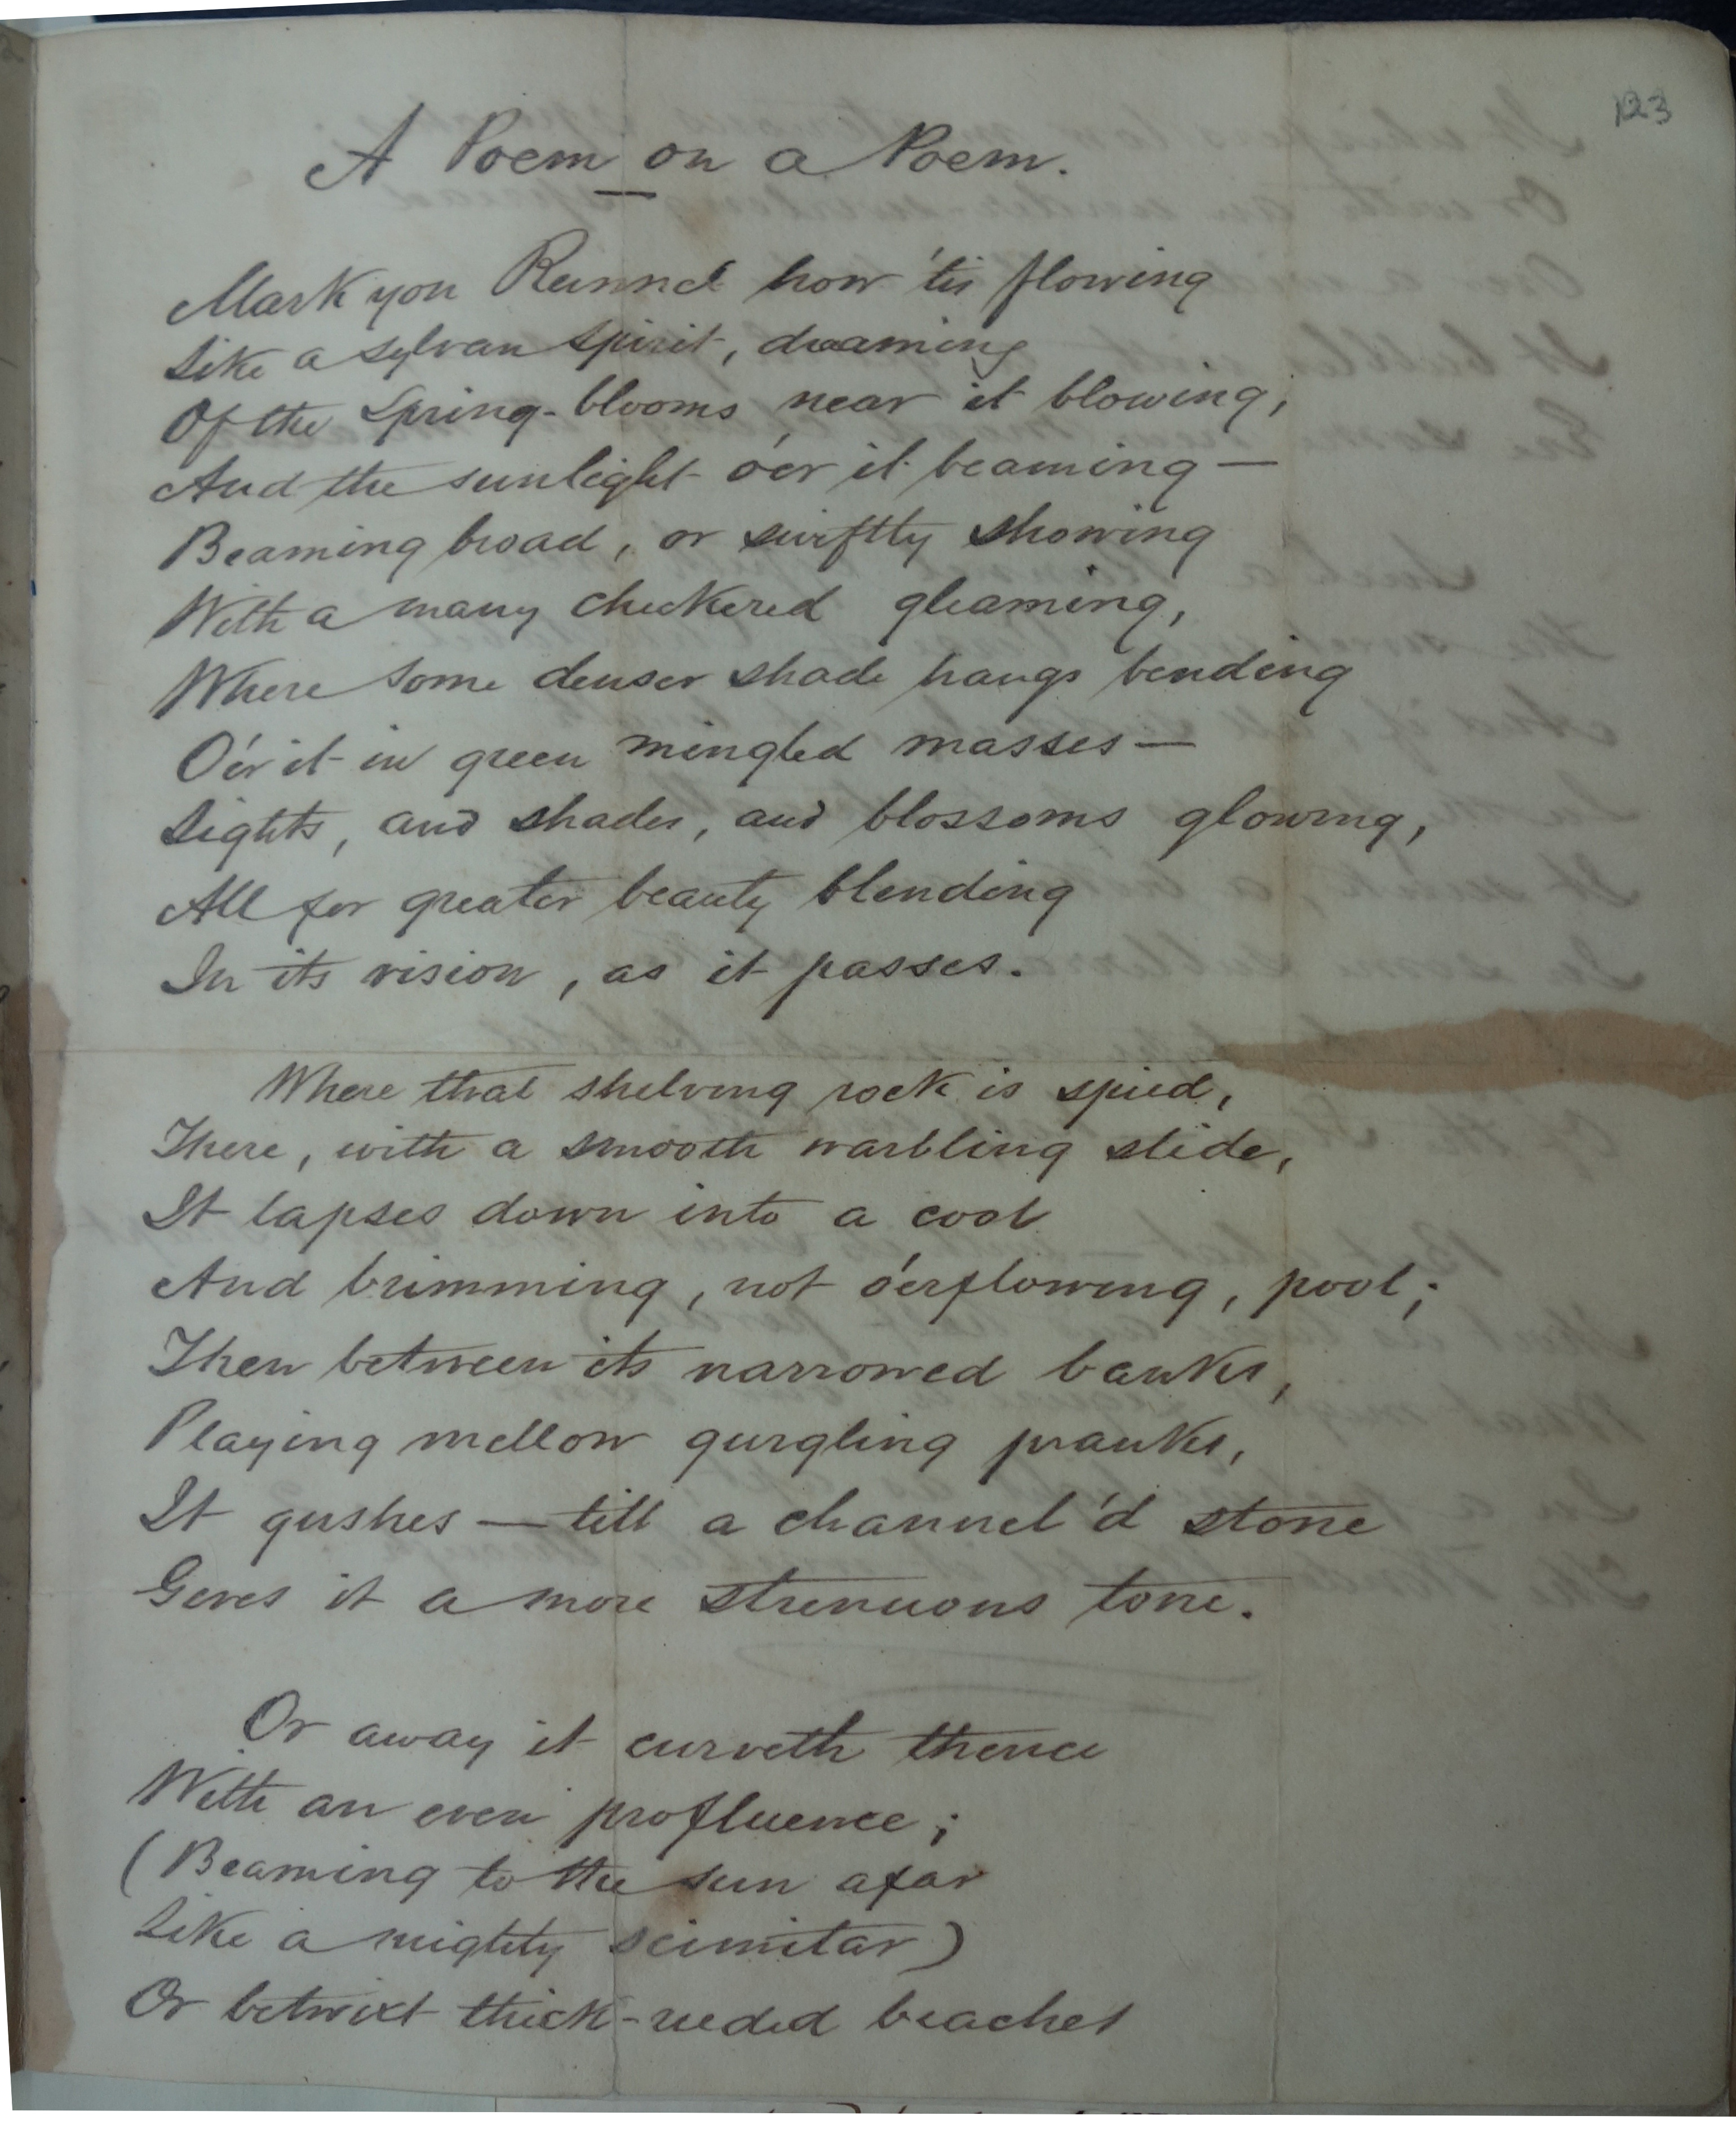 123
A Poem on a Poem.
Mark yon Runnel how 'tis flowing
Like a sylvan spirit, dreaming
Of the Spring-blooms near it blowing,
And the sunlight o'er it beaming—
Beaming broad, or swiftly showing
With a many checkered gleaming,
Where some denser shade hangs bending
O'er it in green mingled masses—
Lights, and shades, and blossoms glowing,
All for greater beauty blending
In its vision, as it passes.
Where that shelving rock is spied,
There, with a smooth warbling slide,
It lapses down into a cool
And brimming, not o'erflowing, pool;
Then between its narrowed banks,
Playing mellow gurgling pranks,
It gushes—till a channel'd stone
Gives it a more strenuous tone.
Or away it curveth thence
With an even profluence;
(Beaming to the sun afar
Like a mighty scimitar)
Or betwixt thick-reeded beaches